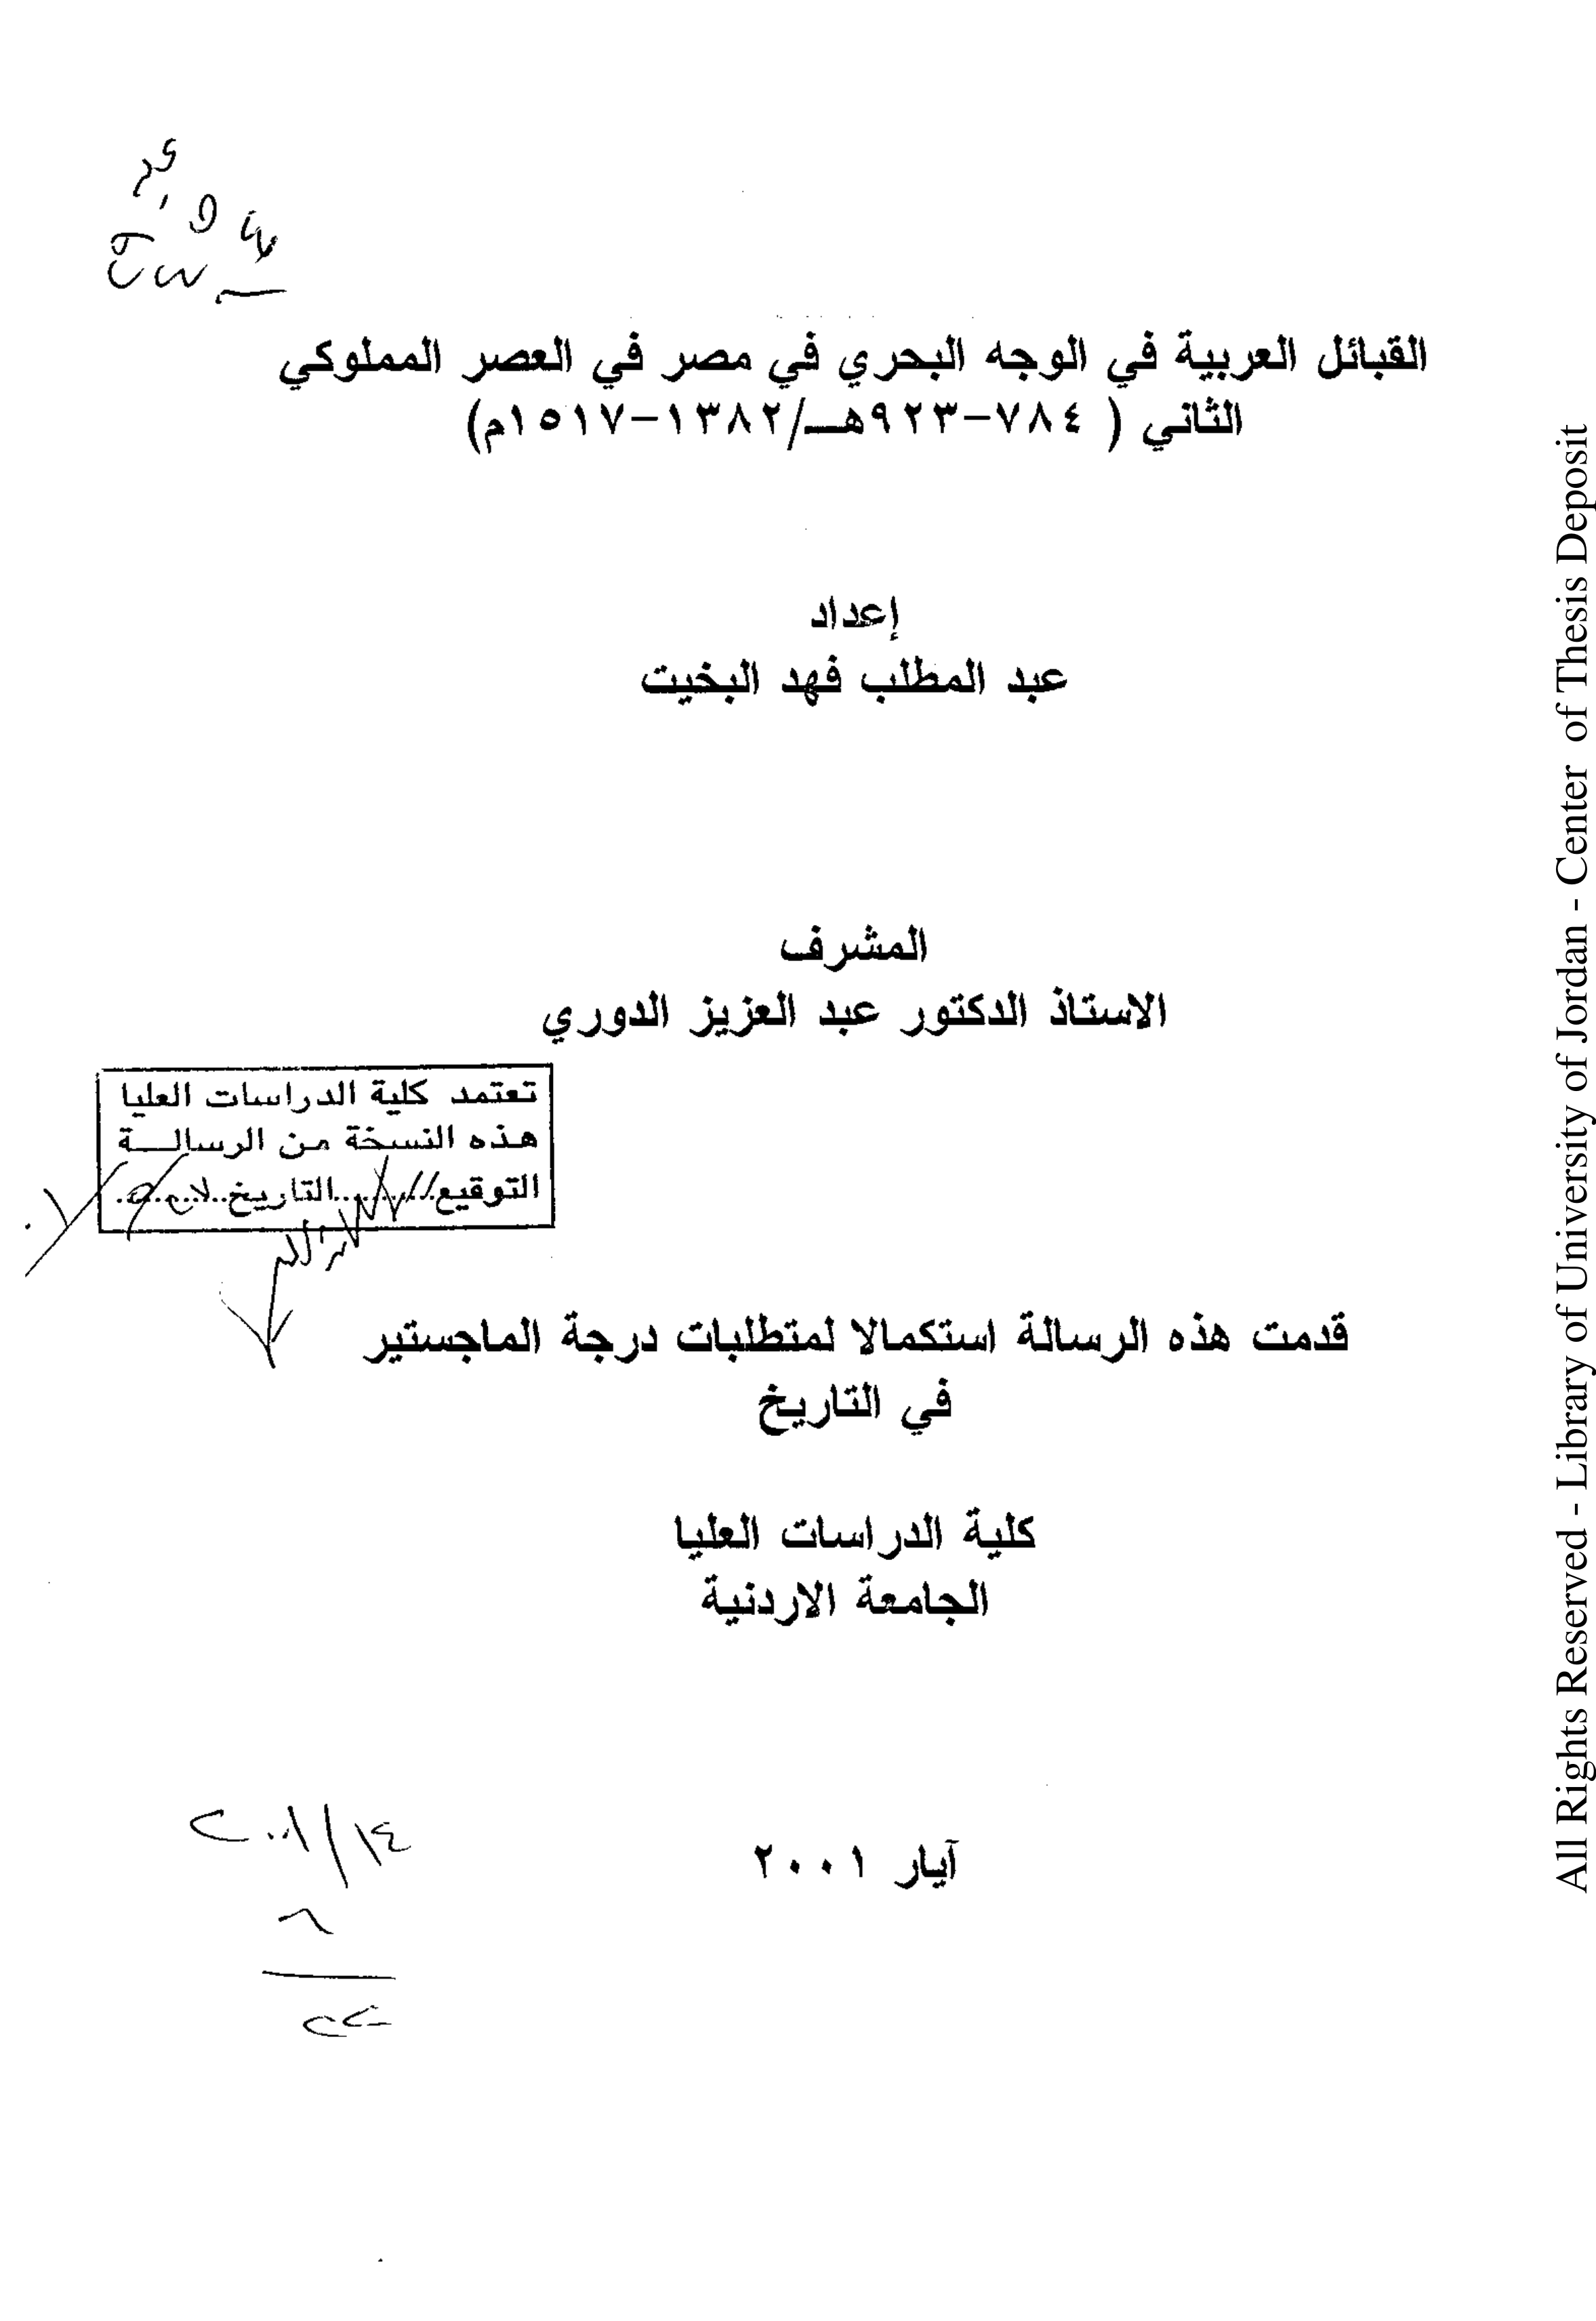 القبائل العربية في الوجه البحري في مصر في العصر المملوكي
الثاني ( ٧٨٤-٩٢٣هـ/١٣٨٢-١٥١٧م)
إعداد
عبد المطلب فهد البخيت
المشرف
الاستاذ الدكتور عبد العزيز الدوري
تعتمد كلية الدراسات العليا
هذه النسخة من الرسالــة
التوقيع.........التاريخ........
قدمت هذه الرسالة استكمالا لمتطلبات درجة الماجستير
في التاريخ
كلية الدراسات العليا
الجامعة الاردنية
آيار ٢٠٠١
All Rights Reserved - Library of University of Jordan - Center of Thesis Deposit